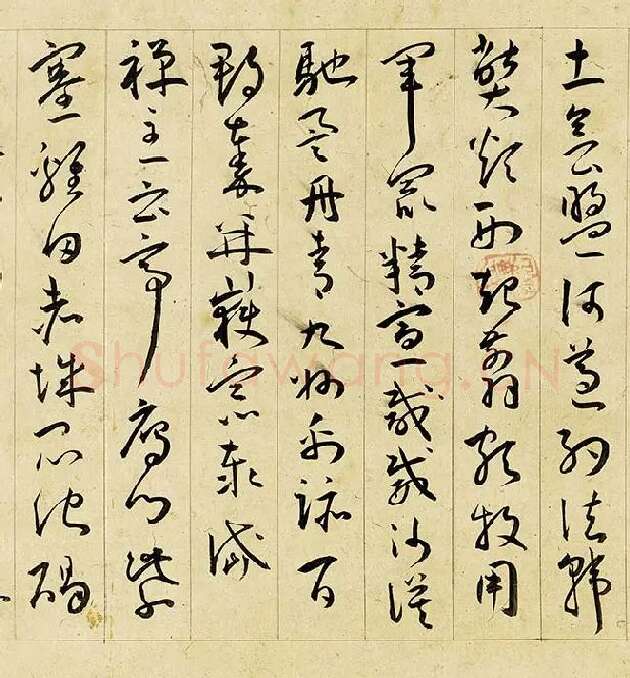 土會盟何遵約法韓
弊煩刑起翦頗牧用
軍最精宣威威沙漠
馳譽丹青九州禹跡百
郡秦并嶽宗泰岱
禪主云亭雁門紫
塞雞田赤城昆池碣
Shufawang.CN